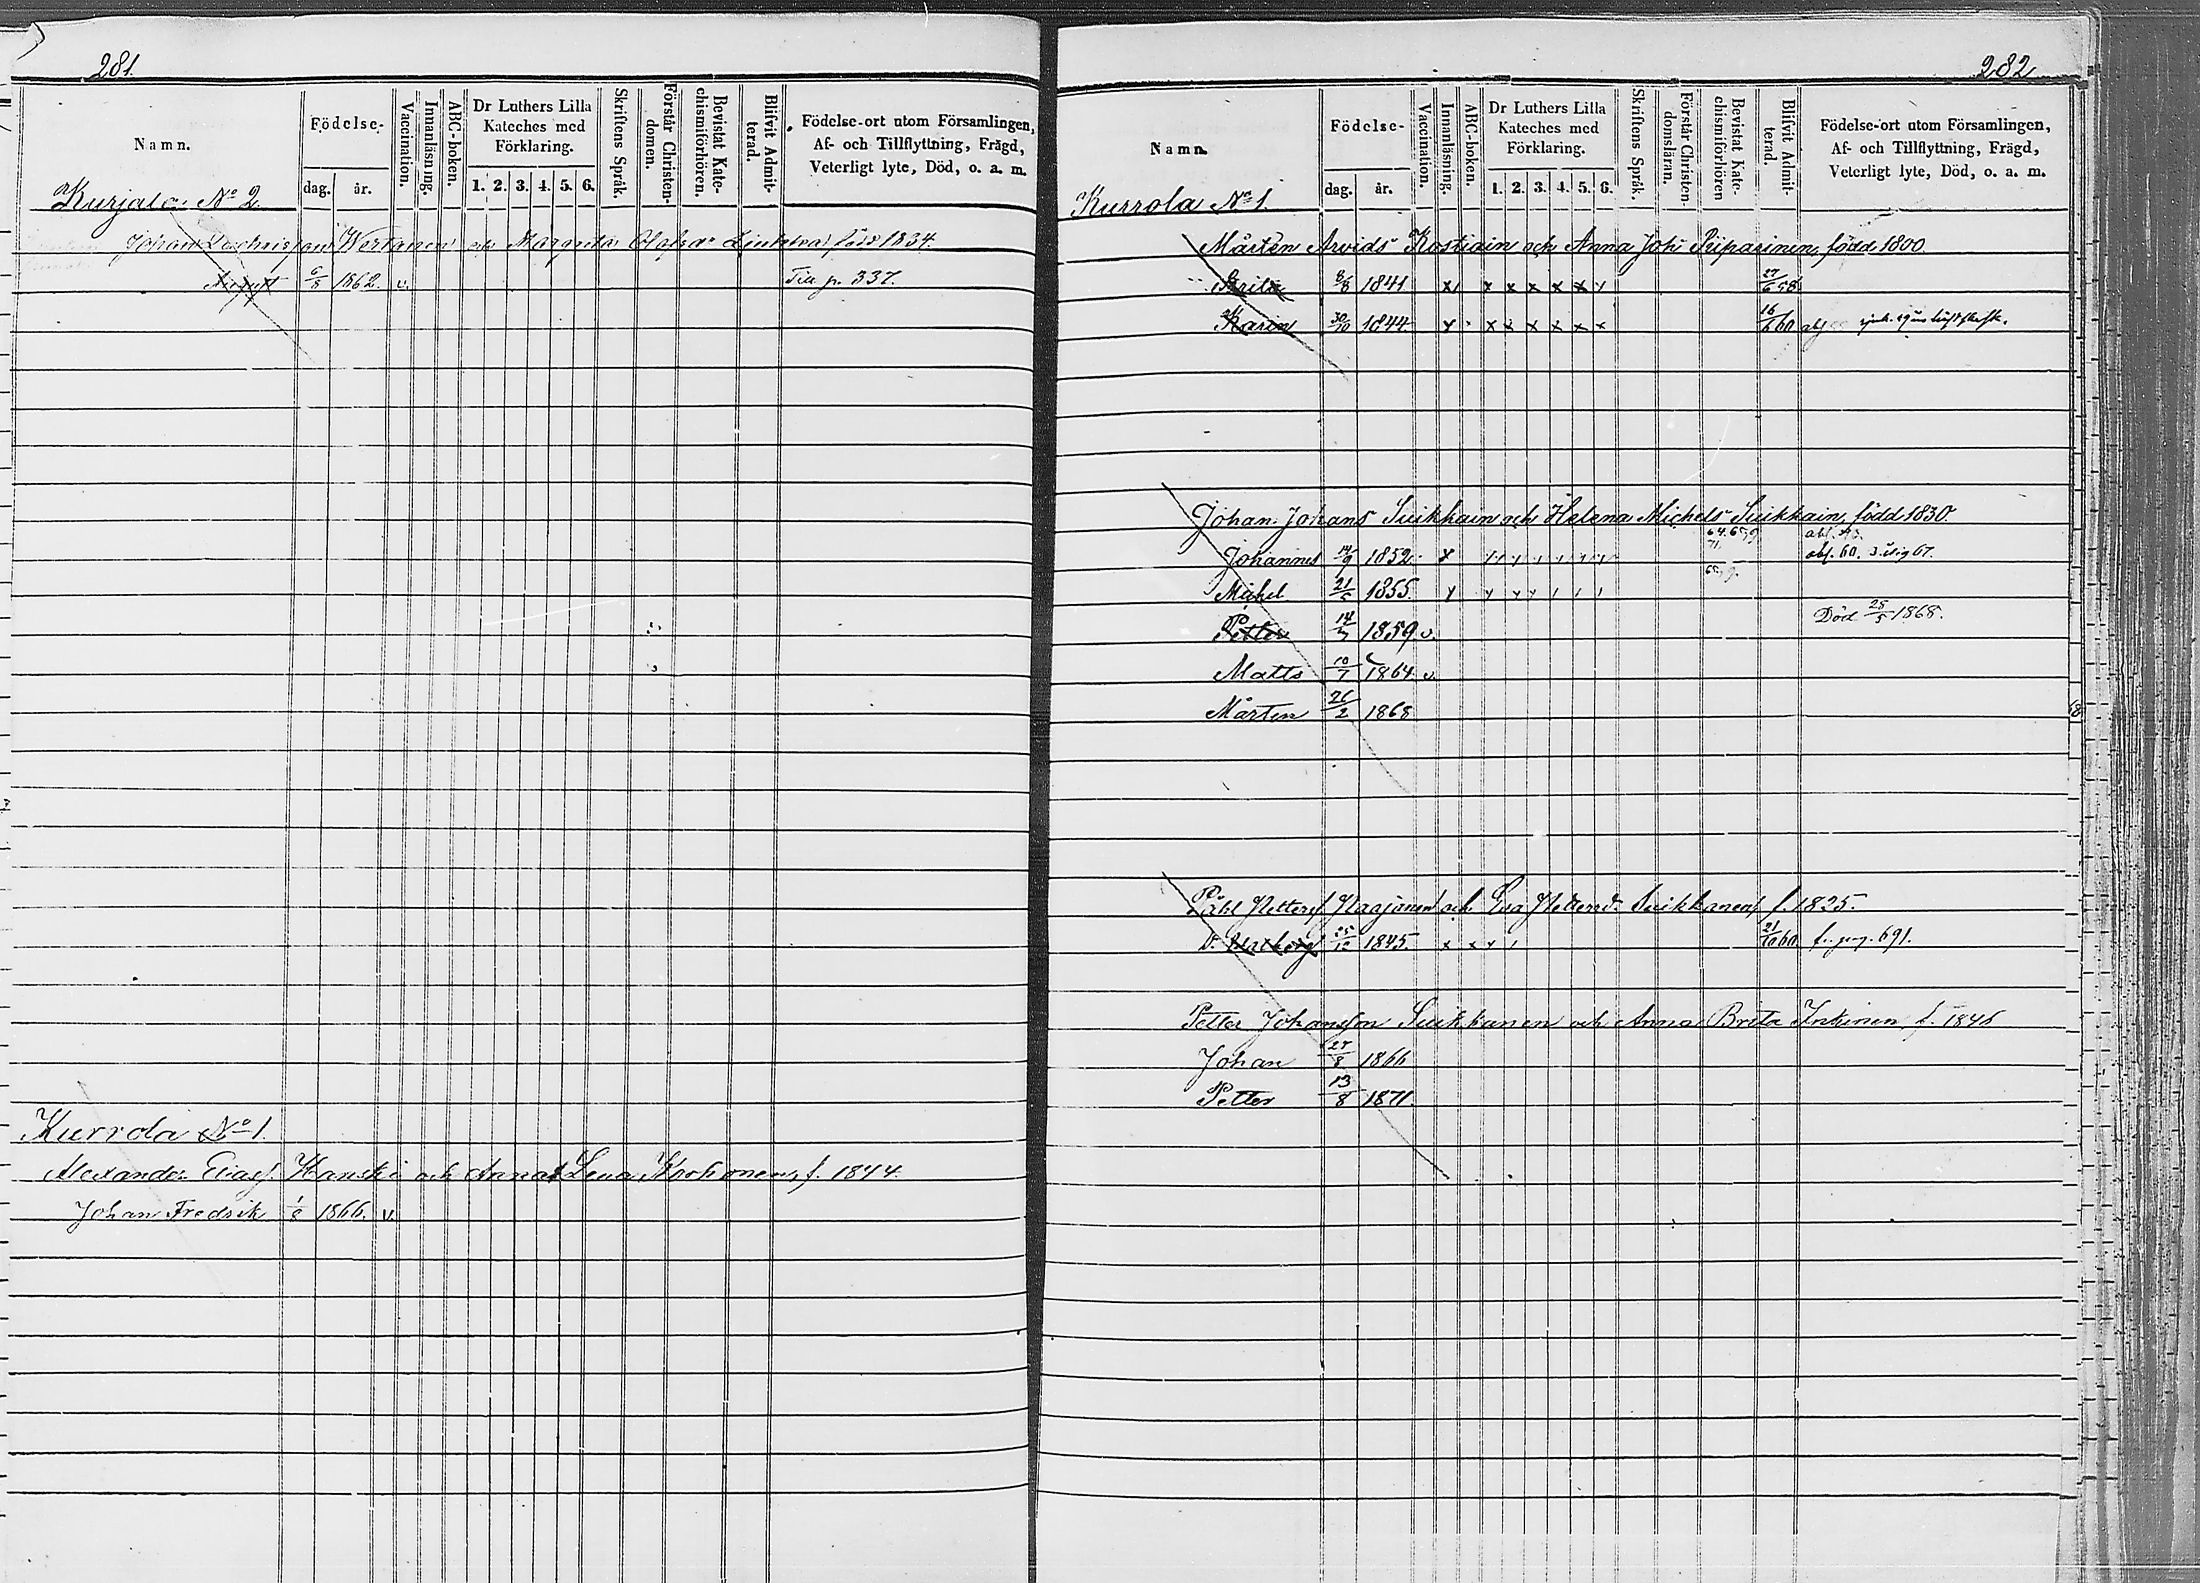 281.
Namn.
Födelse-
dag. år.
Vaccination.
Innanläsning.
ABC-boken.
Dr Luthers Lilla Kateches med Förklaring.
1. 2. 3. 4. 5. 6.
Skriftens Språk.
Förstår Christendomen.
Bevistat Katechismiförhören.
Blifvit Admitterad.
Födelse-ort utom Församlingen,
Af- och Tillflyttning, Frägd,
Veterligt lyte, Död, o. a. m.
Kurjala No 2
Johan Wertanen och Margreta född 1834.
August 6/8 1862. v. Till p. 337.
Kurrola No 1.
Alexander Eliass. Hanski och Anna Lena Korhonen, f. 1844.
Johan Fredrik 1866. v.
282
Namn.
Födelse-
dag. år.
Vaccination.
Innanläsning.
ABC-boken.
Dr Luthers Lilla Kateches med Förklaring.
1. 2. 3. 4. 5. 6.
Skriftens Språk.
Förstår Christendomsläran.
Bevistat Katechismiförhören
Blifvit Admitterad.
Födelse-ort utom Församlingen,
Af- och Tillflyttning, Frägd,
Veterligt lyte, Död, o. a. m.
Kurrola No 1.
Mårten Arvids Kostiain och Anna Joh: Piiparinen, född 1800.
Brita 8/8 1841 x x x x x x x 27/6 58
Karin 30/10 1844 x x x x x x x 16/6 60
Johan Johans Suikkain och Helena Michels Suikkain, född 1830.
Johannes 14/9 1852 x
Michel 21/5 1855.
Petter 14/7 1859 v. Död 28/5 1868.
Matts 10/7 1864 v.
Mårten 26/2 1868
Påhl Petters. Naajonen och Eva Pettersd. Suikkanen f. 1825.
Walborg 25/12 1845 21/10 60. 691.
Petter Johansson Suikkanen och Anna Brita Intinen f. 1846
Johan 27/8 1866
Petter 13/8 1871.